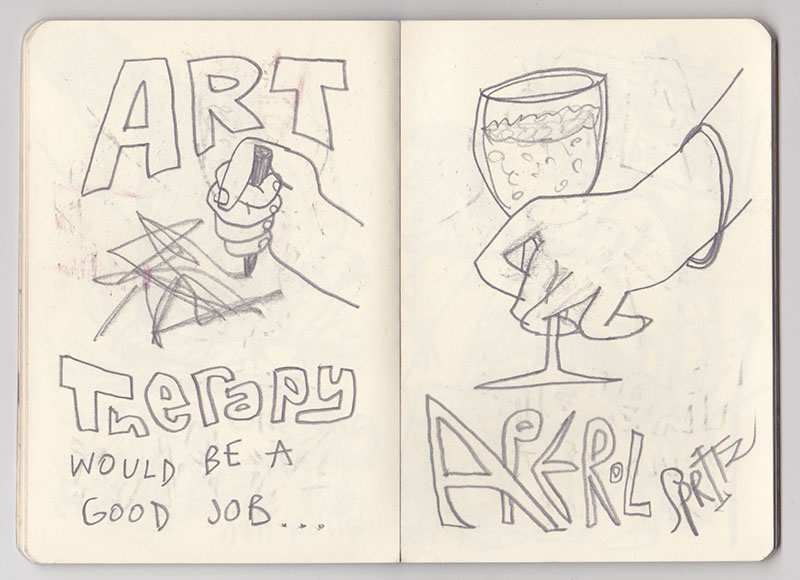 ART
Therapy
WOULD BE A
GOOD JOB...
APEROL SPRITZ